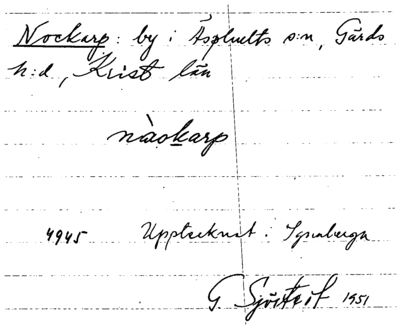 Nockarp: by i Äsphults s:n, Gärds
h:d, Krist län
nàokarp
4945 Upptecknat i
G Sjöstedt 1951